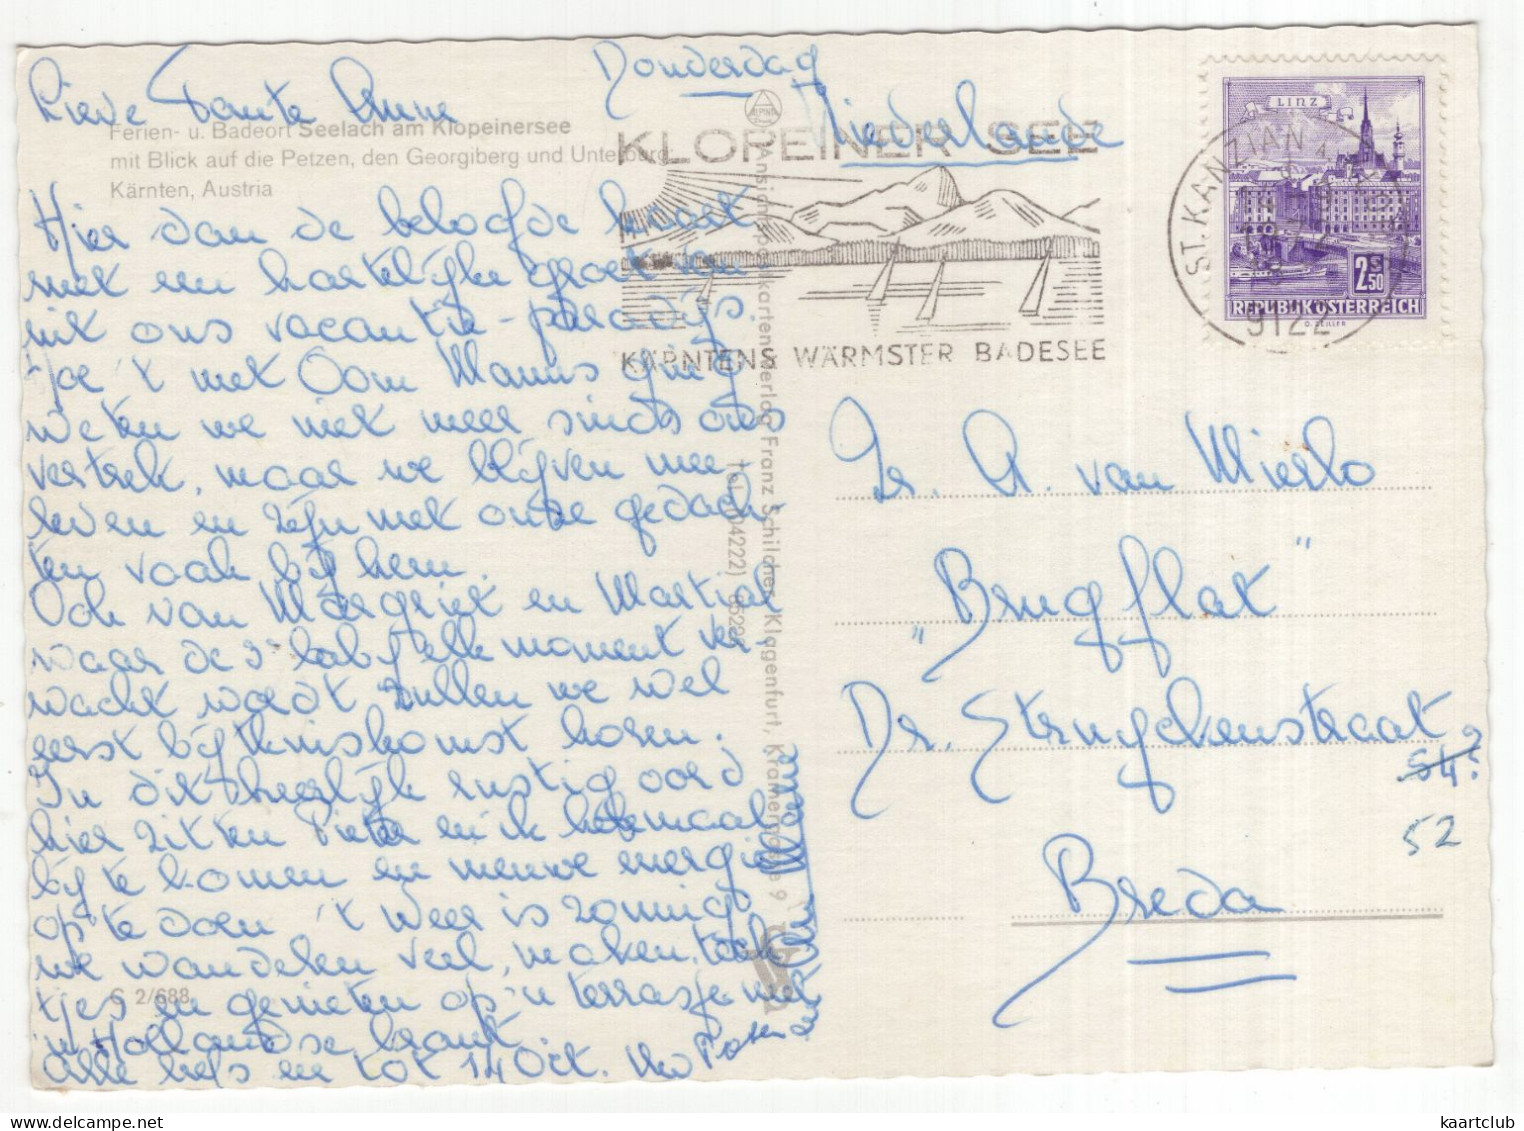 Lieve Tante Anne
Donderdag
Ferien- u. Badeort Seelach am Klopeinersee
mit Blick auf die Petzen, den Georgiberg und Unterburg
Kärnten, Austria
Hier dan de beloofde kaart
met een hartelijke groet van
uit ons vacantie-paradijs.
Hoe 't met Oom Manus ging
weten we niet meer sinds ons
vertrek, maar we blijven mee-
leven en zijn met onze gedach
ten vaak bij hem.
Ook van Margriet en Martial
waar de 3e baby elk moment ver-
wacht wordt zullen we wel
eerst bij thuiskomst horen.
In dit heerlijk rustig oord
hier zitten Pieter en ik helemaal
bij te komen en nieuwe energie
op te doen 't weer is zonnig
we wandelen veel, maken tocht
tjes en genieten op 'n terrasje met
'n Hollandse krant
Alle liefs en tot 14 Oct.
C 2/688
ALPINA
Ansichtspostkartenverlag Franz Schilcher, Klagenfurt, Kramergasse 9
Tel. (04222)
Niederlande
KLOPEINER SEE
KÄRNTENS WÄRMSTER BADESEE
ST. KANZIAN
9122
LINZ
2 S 50
REPUBLIK ÖSTERREICH
O. ZEILLER
Fr. A. van Mierlo
"Brugflat"
Dr. Struyckenstraat
54?
52
Breda
kaartclub